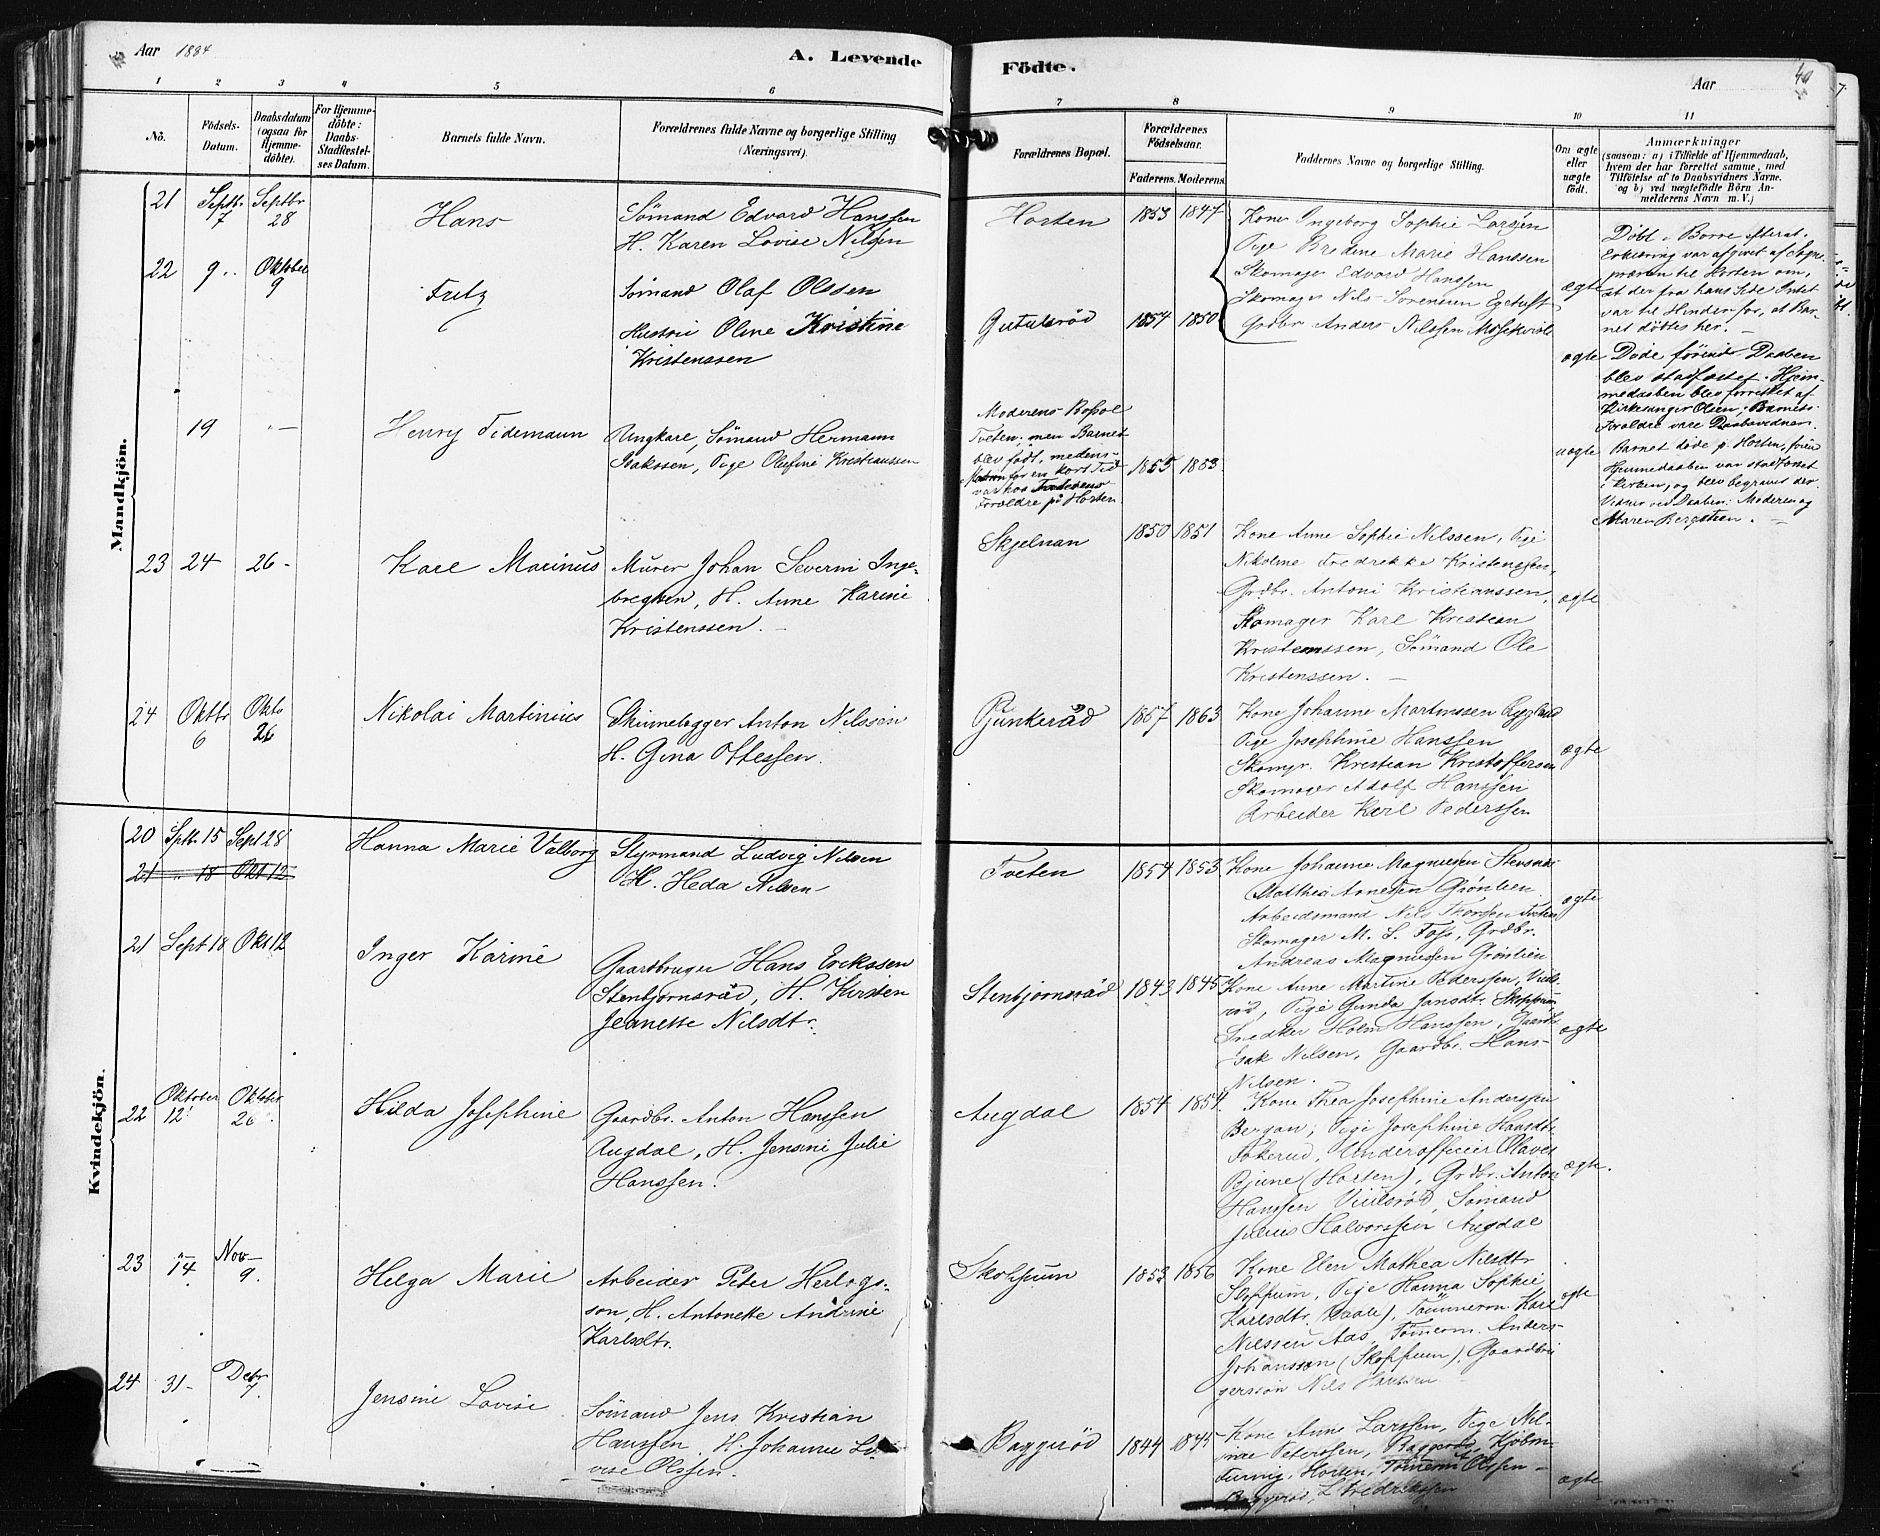 Aar 1884
A. Levende
Födte.
Aar
40
1 2 3 4 5 6
7 8 9 10 11
No.
Födsels-
Datum.
Daabsdatum
(ogsaa for
Hjemme-
döbte).
For Hjemme-
döbte:
Daabs-
Stadfæstel-
ses Datum.
Barnets fulde Navn.
Forældrenes fulde Navne og borgerlige Stilling
(Næringsvei).
Forældrenes Bopæl.
Forældrenes
Födselsaar.
Faderens. Moderens.
Faddernes Navne og borgerlige Stilling.
Om ægte
eller
uægte
födt.
Anmærkninger
(saasom: a) i Tilfælde af Hjemmedaab,
hvem der har forrettet samme, med
Tilföielse af to Daabsvidners Navne.
og b) ved uægtefödte Börn An-
melderens Navn m. V.)
Mandkjön.
21 Septbr. 7 Septbr 28
Hans
Sömand Edvard Hanssen
H. Karen Lovise Nilssen
Horten 1853 1847
Kone Ingeborg Sophie Larssen
Pige Bredine Marie Hanssen
Skomager Edvard Hanssen
Skomager Nils Sörensen
Grdbr Anders Nilssen
ægte
Döbt i Borre efterat
Erklæring var afgivet af Sogne-
præsten til Horten om,
at der fra hans Side Intet
var til Hinder for, at Bar-
net döbtes her. –
22 9 .. Oktober 9
Fritz
Sömand Olaf Olssen
Hustru Oline Kristine
Kristenssen
Gutulsröd 1854 1850
ægte
Döde förend Daaben
blev stadfæstet. Hjem-
medaaben blev forrettet af
Kirkesanger Olsen; Barnets
Foroldre vare Daabsvidner.
19 " –
Henry Tidemann
Ungkarl, Sömand Hermann
Isakssen, Pige Olufine Kristianssen
Moderens Bopæl
Tveten; men Barnet
blev födt, medens
Moderen for en kort Tid
var hos Faderens
Foroldre på Horten
1855 1853
uægte
Barnet döde p. Horten, förend
Hjemmedaaben var stadfæstet
i Kirken, og blev begravet der
Vidner ved Daaben: Moderen og
Maren Bergsteen. –
23 24 26 -
Karl Marinus
Murer Johan Severin Inge-
bregtsen, H. Anne Karine
Kristenssen. –
Skjelnan
1850 1851
Kone Anne Sophie Nilssen, Pige
Nikoline Fredrekke Kristenssen,
Grdbr. Antoni Kristianssen,
Skomager Karl Kristian
Kristenssen, Sömand Ole
Kristenssen. –
ægte
24 Oktbr 6 Oktb 26
Nikolai Martinius
Skinnelægger Anton Nilssen
H. Gina Ottessen.
Pjunkeröd 1857 1863
Kone Johanne Martinssen Rygland
Pige Josephine Hanssen
Skomgr. Kristian Kristoffersen
Skomager Adolf Hanssen
Arbeider Karl Pederssen
ægte
Kvindekjön.
20 Sptb. 15 Sept 28
Hanna Marie Valborg
Styrmand Ludvig Nilsen
H. Heda Nilsen
Tveten 1854 1853
Kone Johanne Magnussen
Mathea Arnesen Grönlien
Arbeidsmand Nils Thorsen Tveten
Skomager M. S. Foss, Grdbr.
Andreas Magnussen Grönlien
ægte
21 " 18 Okt 12
21 Sept 18 Okt 12
Inger Karine
Gaardbruger Hans Erikssen
Stenbjörnsröd, H. Kirsten
Jeanette Nilsdtr.
Stenbjörnsröd 1843 1845
Kone Anne Martine Pederssen, Viuls-
röd, Pige Gunda Jansdtr Skoppum,
Snedker Holm Hanssen, Gaardb.
Isak Nilsen, Gaardbr. Hans
Nilsen.
ægte
22 Oktober 12 Oktober 26
Hilda Josephine
Gaardbr. Anton Hanssen
Augdal, H. Jensine Julie
Hanssen.
Augdal 1854 1854
Kone Thea Josephine Anderssen
Bergan, Pige Josephine Hansdtr
Fokerud, Underofficier Olaves
Bjune (Horten), Grdbr. Anton
Hanssen Viulsröd, Sömand
Julius Halvorssen Augdal
ægte.
23 14 Nov 9.
Helga Marie
Arbeider Peter Herlogs-
son, H. Antonette Andrine
Karlsdtr.
Skoppum 1853 1856
Kone Elen Mathea Nilsdtr
Skoppum, Pige Hanna Sophie
Karlsdtr. (Vaale), Tömmerm. Karl
Nilssen Aas, Tömerm. Anders
Johansson (Skoppum), Gaardbru
gersson Nils Hanssen
ægte
24 31 - Decbr 7.
Jensine Lovise
Sömand Jens Kristian
Hanssen, H. Johanne Lo-
vise Olssen.
Baggeröd 1844 1845
Kone Anne Larssen, Pige Nil-
sine Peterssen, Baggeröd, Kjöbm.
Furnig, Horten, Tömerm Olssen
Baggeröd, L. Fredrikssen
ægte